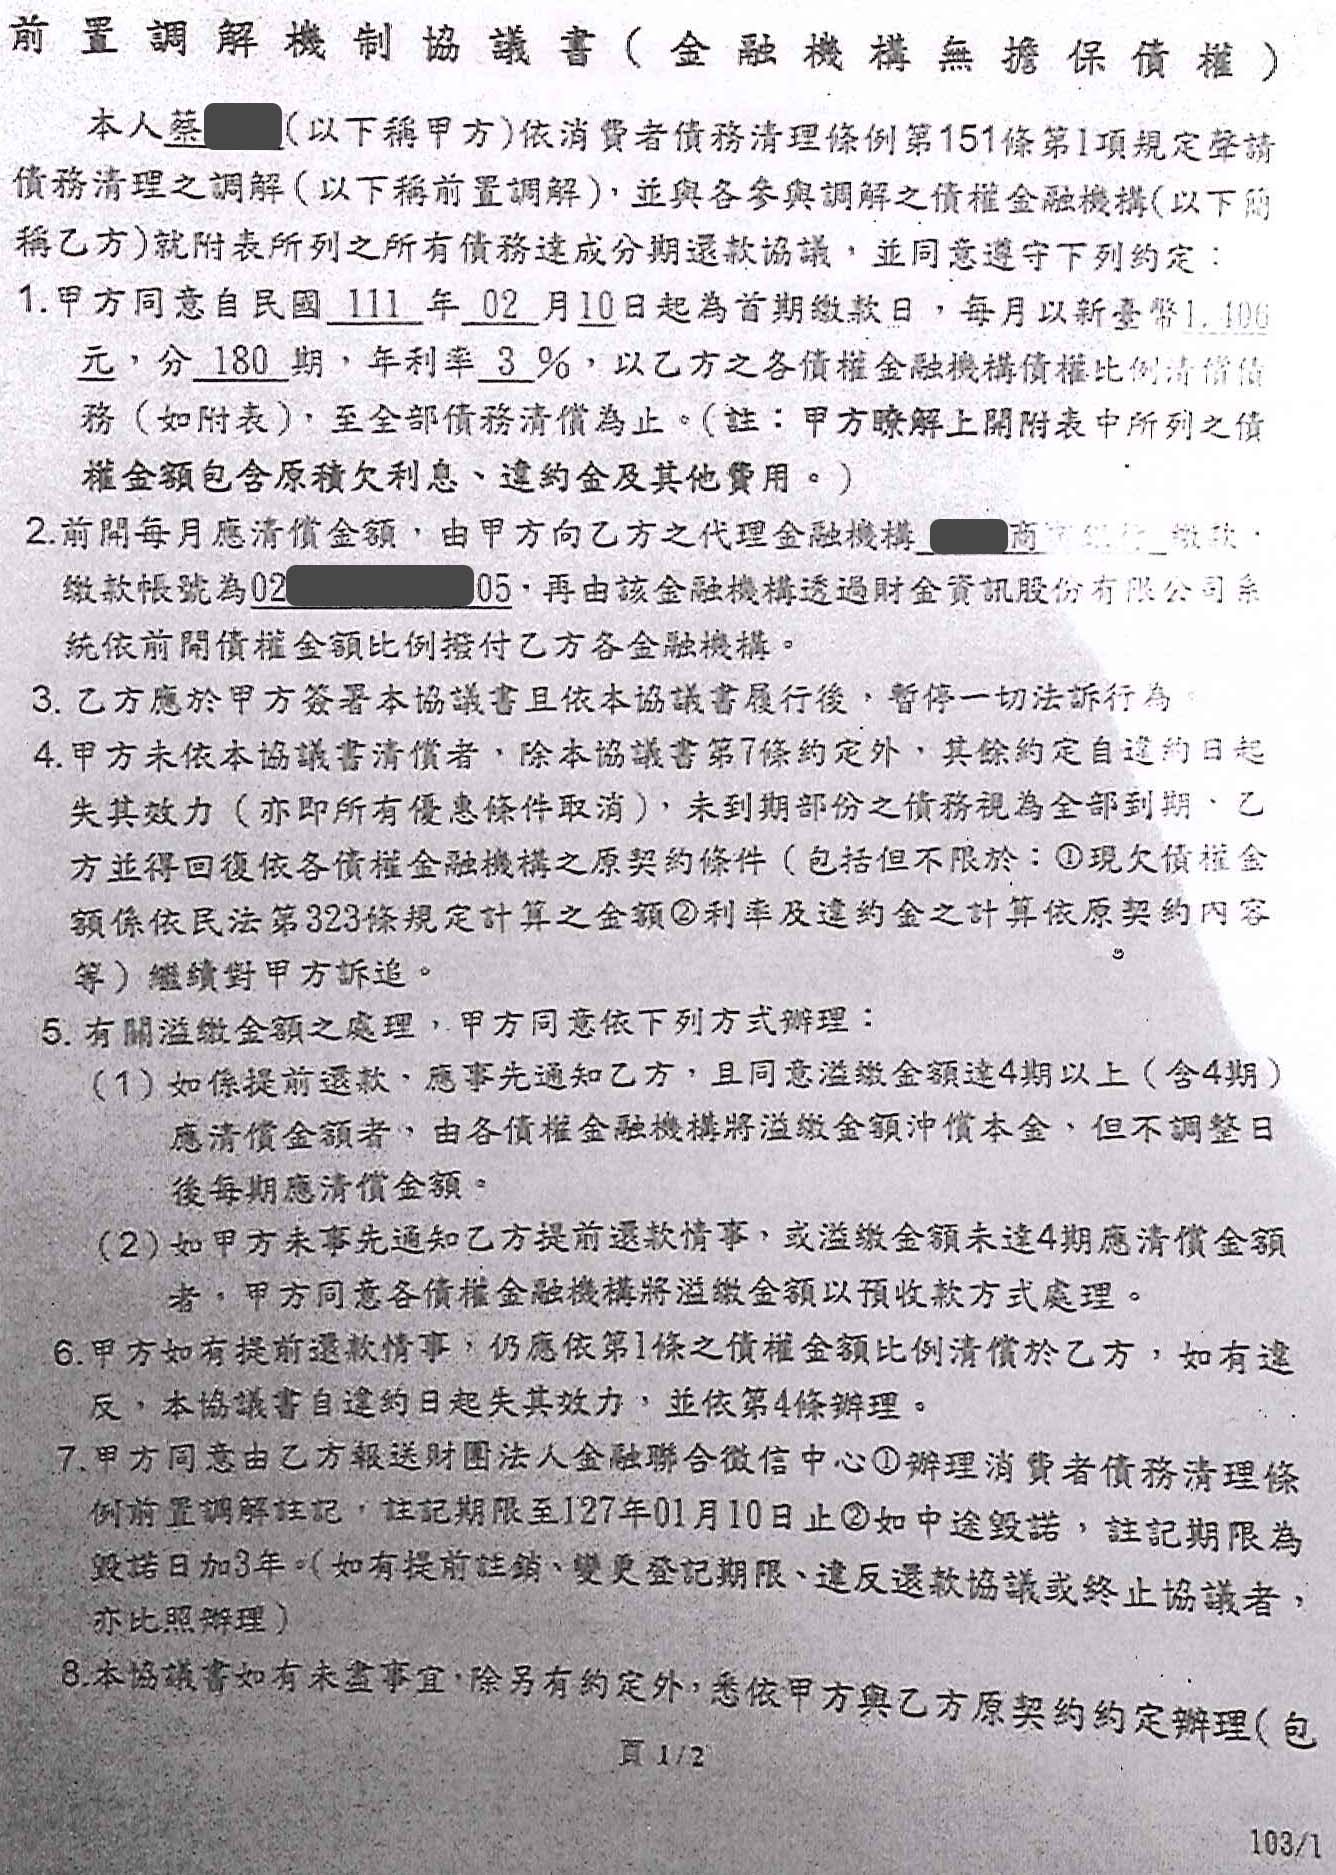 前置調解機制協議書(金融機構無擔保債權)
本人蔡(以下稱甲方)依消費者債務清理條例第151條第1項規定聲請
債務清理之調解(以下稱前置調解),並與各參與調解之債權金融機構(以下簡
稱乙方)就附表所列之所有債務達成分期還款協議,並同意遵守下列約定:
1.甲方同意自民國 111 年 02 月10日起為首期繳款日,每月以新臺幣1,106
元,分 180 期,年利率 3 %,以乙方之各債權金融機構債權比例清償債
務(如附表),至全部債務清償為止。(註:甲方瞭解上開附表中所列之債
權金額包含原積欠利息、違約金及其他費用。)
2.前開每月應清償金額,由甲方向乙方之代理金融機構 商業銀行 繳款,
繳款帳號為02 05,再由該金融機構透過財金資訊股份有限公司系
統依前開債權金額比例撥付乙方各金融機構。
3. 乙方應於甲方簽署本協議書且依本協議書履行後,暫停一切法訴行為。
4.甲方未依本協議書清償者,除本協議書第7條約定外,其餘約定自違約日起
失其效力(亦即所有優惠條件取消),未到期部份之債務視為全部到期、乙
方並得回復依各債權金融機構之原契約條件(包括但不限於:①現欠債權金
額係依民法第323條規定計算之金額②利率及違約金之計算依原契約內容
等)繼續對甲方訴追。
5. 有關溢繳金額之處理,甲方同意依下列方式辦理:
(1)如係提前還款、應事先通知乙方,且同意溢繳金額達4期以上(含4期)
應清償金額者,由各債權金融機構將溢繳金額沖償本金、但不調整日
後每期應清償金額。
(2)如甲方未事先通知乙方提前還款情事,或溢繳金額未達4期應清償金額
者,甲方同意各債權金融機構將溢繳金額以預收款方式處理。
6.甲方如有提前還款情事,仍應依第1條之債權金額比例清償於乙方,如有違
反,本協議書自違約日起失其效力,並依第4條辦理。
7.甲方同意由乙方報送財團法人金融聯合徵信中心①辦理消費者債務清理條
例前置調解註記,註記期限至127年01月10日止②如中途毀諾,註記期限為
毀諾日加3年。(如有提前註銷、變更登記期限、違反還款協議或終止協議者,
亦比照辦理)
8.本協議書如有未盡事宜,除另有約定外,悉依甲方與乙方原契約約定辦理(包
頁 1/2
103/1